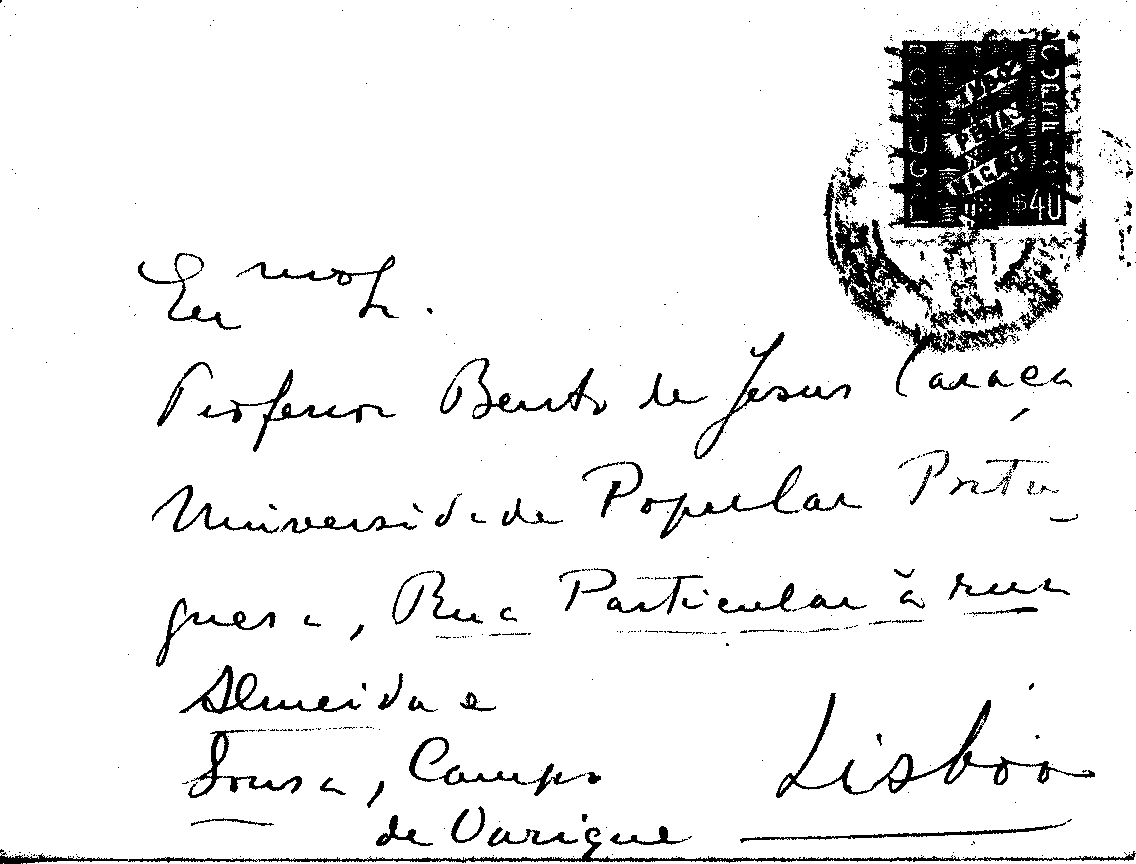 PORTUGAL
CORREIO
$40
Exmo Sr.
Professor Bento de Jesus Caraça
Universidade Popular Portu-
guesa, Rua Particular à rua
Almeida e
Sousa, Campo
de Ourique
Lisboa